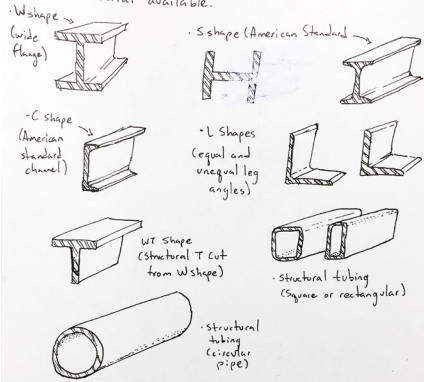 available.
· W shape
(wide
flange)
· S shape (American Standard
- C shape
(American
standard
channel)
· L Shapes
(equal and
unequal leg
angles)
WT Shape
(Structural T Cut
from W shape)
· Structural tubing
(Square or rectangular)
· Structural
tubing
(circular
pipe)